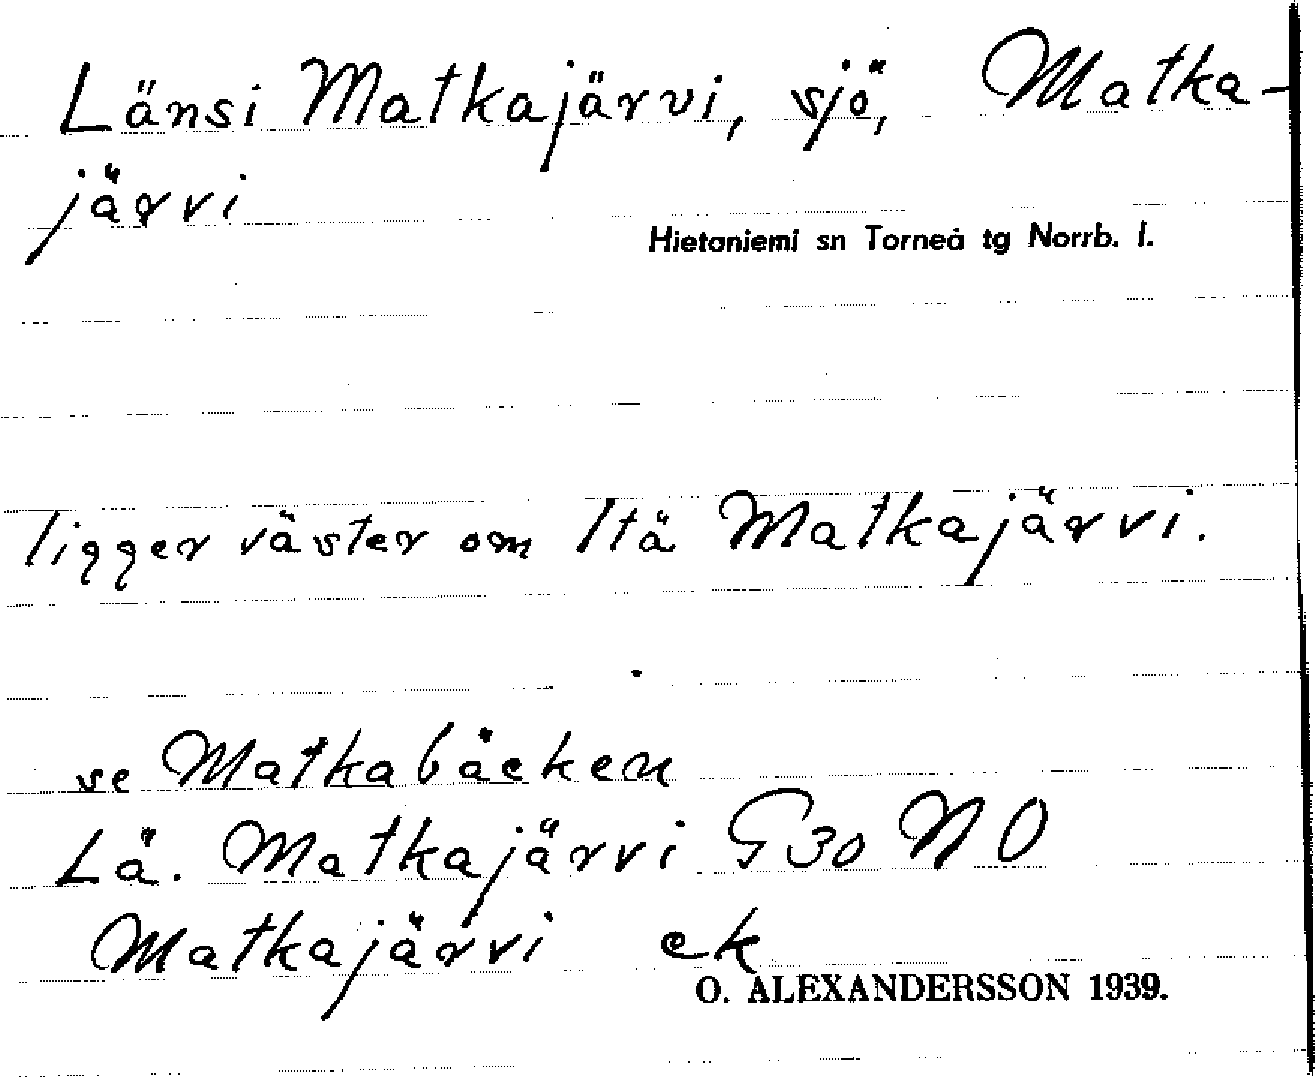 Länsi Matkajärvi, sjö, Matka-
järvi
Hietaniemi sn Torneå tg Norrb. l.
ligger väster om Itä Matkajärvi.
se Matkabäcken
Lä. Matkajärvi G30 NO
Matkajärvi ek
O. ALEXANDERSSON 1939.